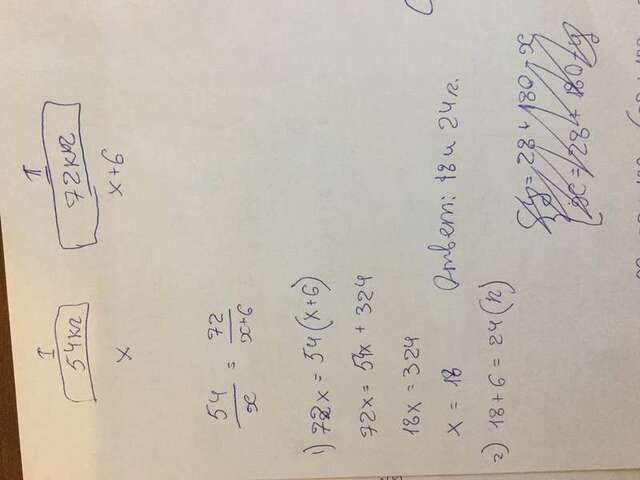 I II
54кг 72кг
x x+6
54/x = 72/x+6
1) 72x = 54(x+6)
72x = 54x + 324
18x = 324
x = 18
2) 18+6 = 24(л)
Ответ: 18 и 24 л.
y = 28 + 180 - x
x = 28 + 180 + y